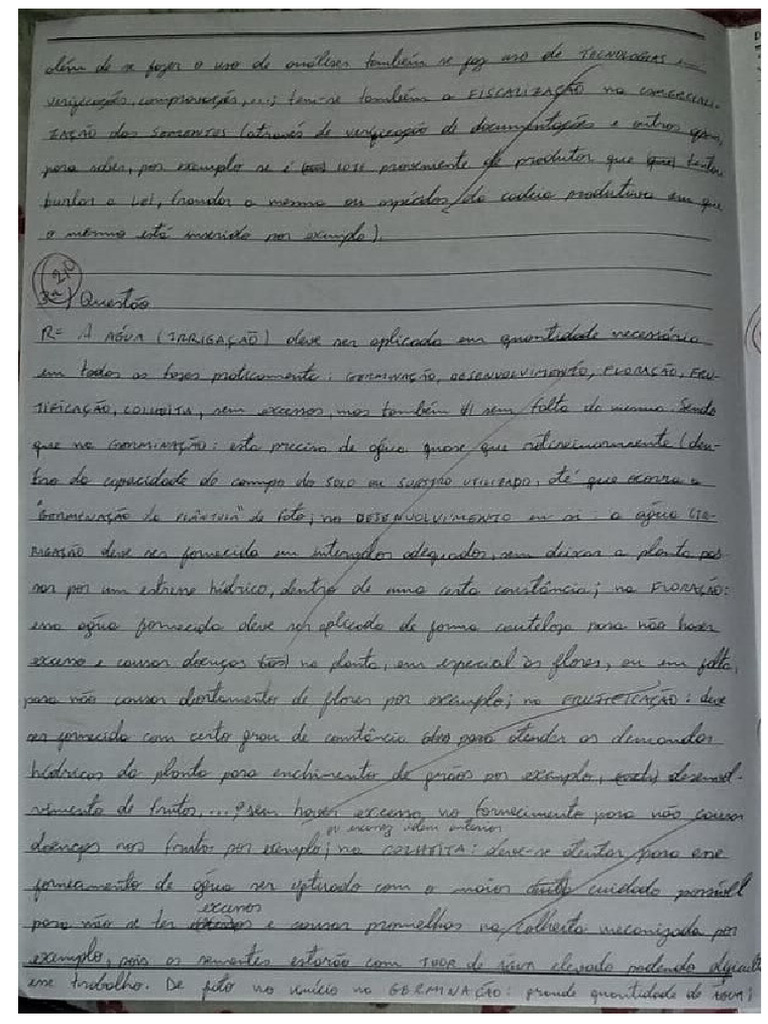 além de se fazer o uso de análises também se faz uso de TECNOLOGIAS e
verificações, comprovações, ...; tem-se também a FISCALIZAÇÃO na COMERCIALI-
ZAÇÃO das SEMENTES (através de verificação de documentações e outros
para saber, por exemplo se é LOTE proveniente de produtor que tentou
burlar a LEI, fraudar a mesma ou aspectos da cadeia produtiva em que
a mesma está inserida por exemplo).
2,0
3ª) Questão
R= A ÁGUA (IRRIGAÇÃO) deve ser aplicada em quantidade necessária
em todas as fases praticamente: GERMINAÇÃO, DESENVOLVIMENTO, FLORAÇÃO, FRU-
TIFICAÇÃO, COLHEITA, sem excessos, mas também sem falta da mesma. Sendo
que na GERMINAÇÃO: esta precisa de água quase que (den-
tro da capacidade de campo do SOLO ou SUBSTRATO UTILIZADO, até que ocorra a
"GERMINAÇÃO da PLÂNTULA" de fato; no DESENVOLVIMENTO em si: a água (IR-
RIGAÇÃO deve ser fornecida em intervalos adequados, sem deixar a planta pas-
sar por um estresse hídrico, dentro de uma certa constância; na FLORAÇÃO:
essa água fornecida deve ser aplicada de forma cautelosa para não haver
excesso e causar doenças na planta, em especial às flores, ou em falta,
para não causar abortamento de flores por exemplo; na FRUTIFICAÇÃO: deve
ser fornecida com certo grau de constância para atender as demandas
hídricas da planta para enchimento de grãos por exemplo, desenvol-
vimento de frutos, ..., sem haver excesso no fornecimento para não causar
ou escassez idem anterior
doenças nos frutos por exemplo; na COLHEITA: deve-se atentar para esse
fornecimento de água ser efetuado com o maior cuidado possível
excessos
para não se ter e causar na colheita mecanizada por
exemplo, pois as sementes estarão com TEOR de ÁGUA elevado podendo
esse trabalho. De fato no início na GERMINAÇÃO: grande quantidade de ÁGUA;